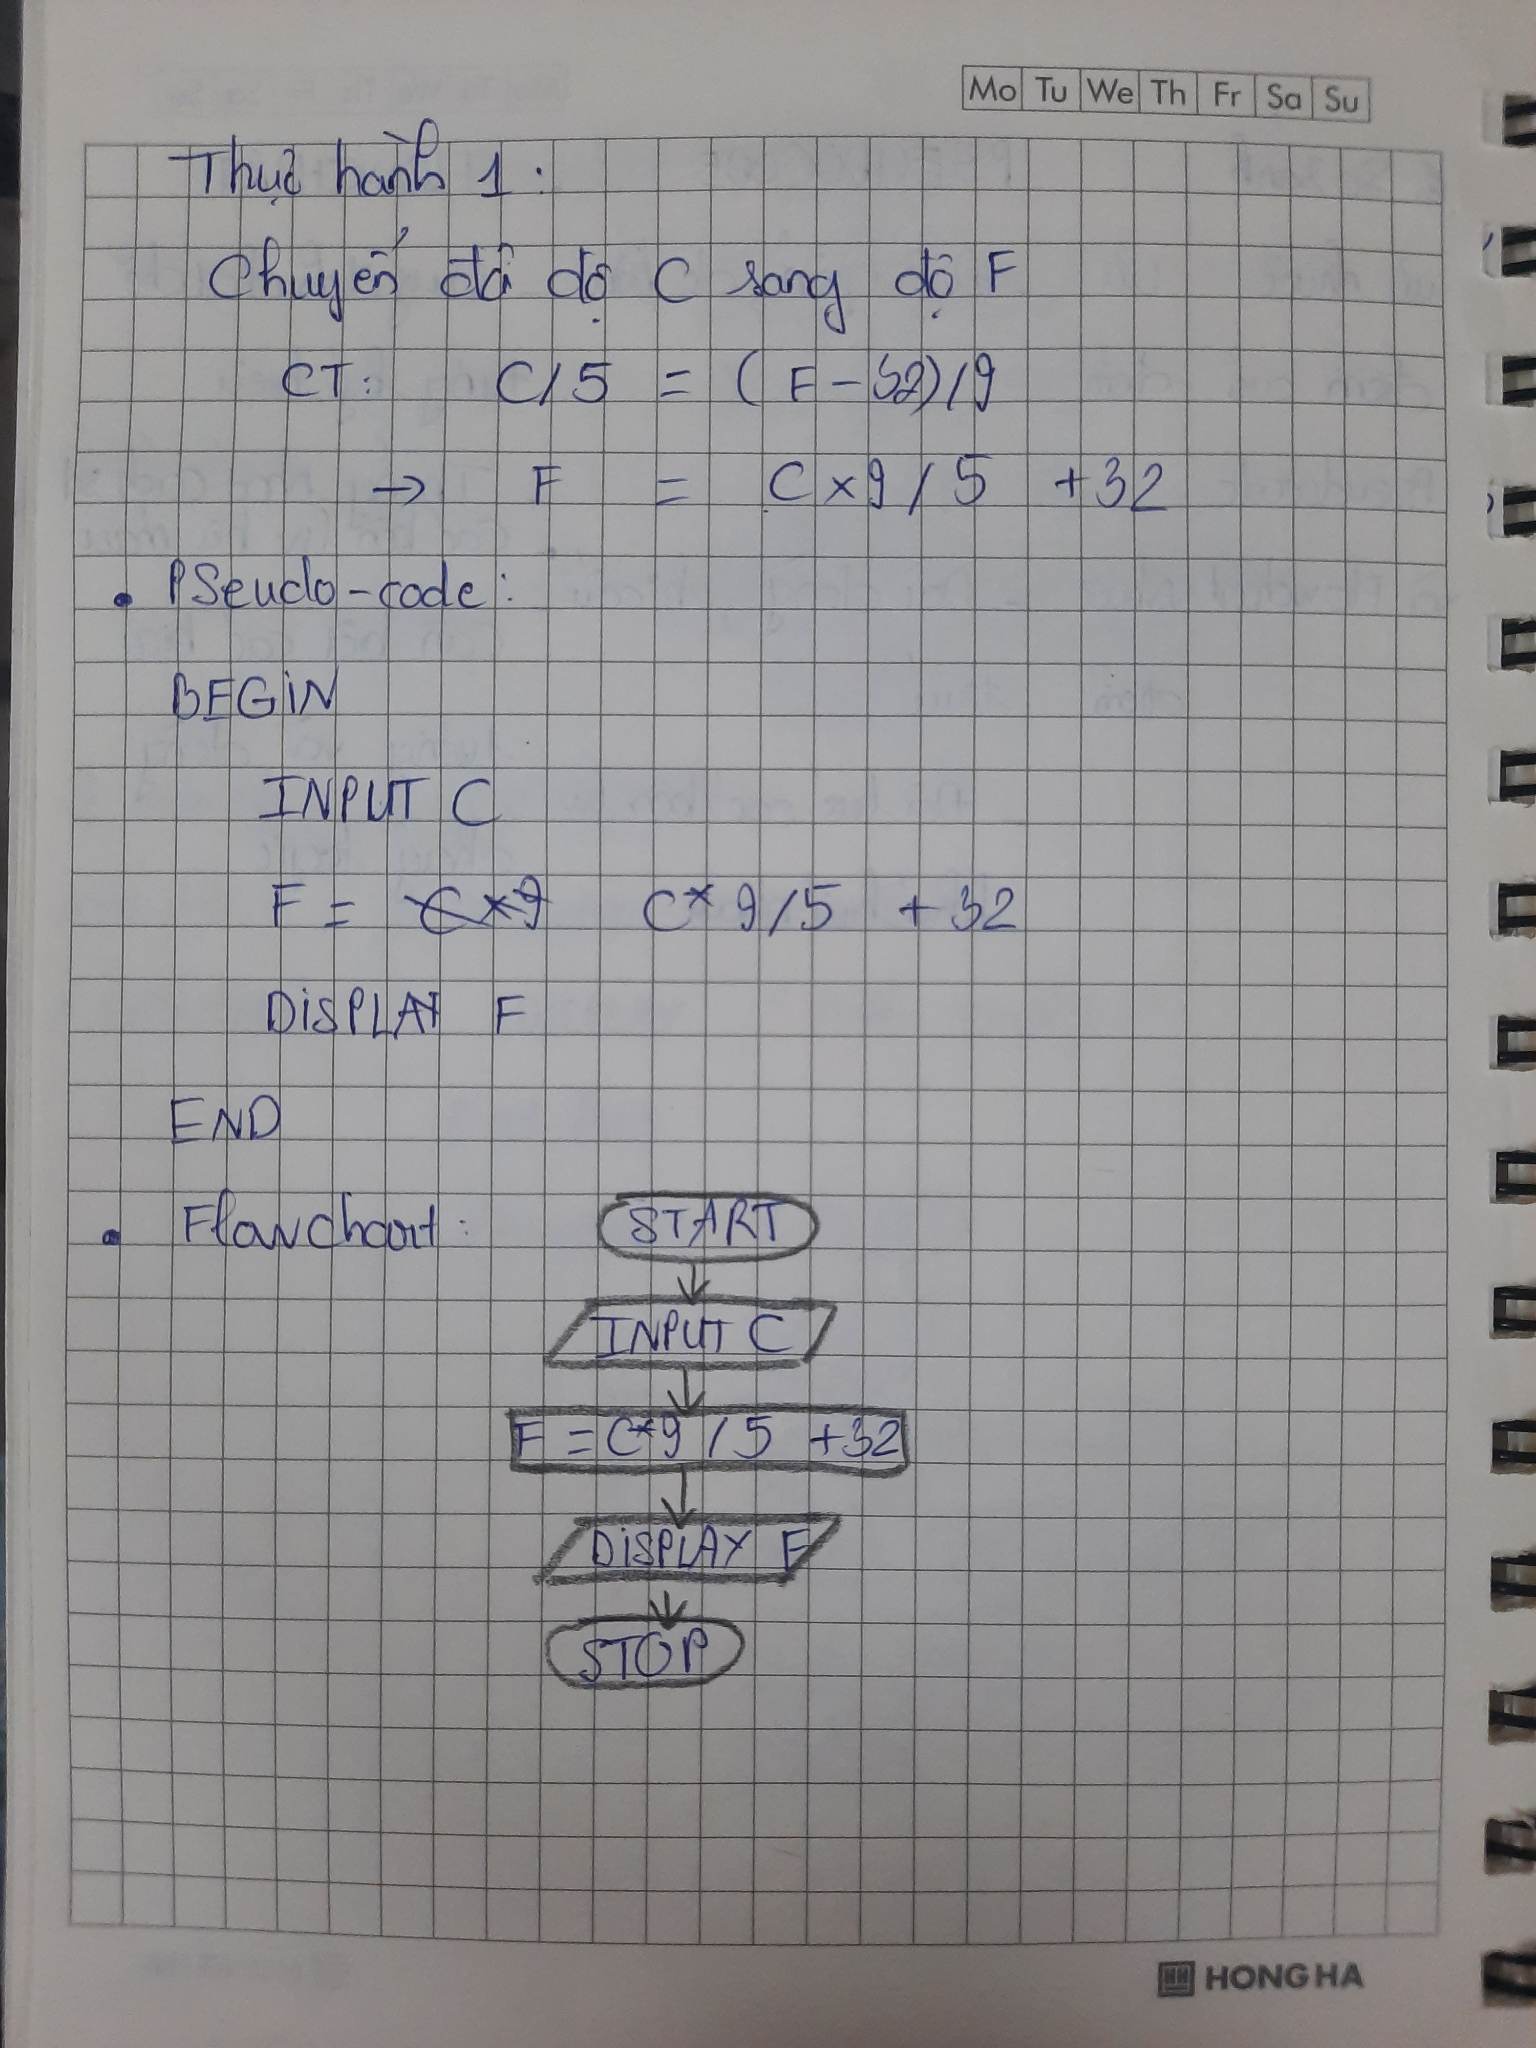 Mo Tu We Th Fr Sa Su
Thực hành 1:
Chuyển đổi độ C sang độ F
CT: C/5 = (F-32)/9
→ F = C×9/5 +32
• PSeudo-code:
BEGIN
INPUT C
F = C×9 C*9/5 +32
DISPLAY F
END
• Flowchart:
START
INPUT C
F = C*9/5 +32
DISPLAY F
STOP
HONG HA